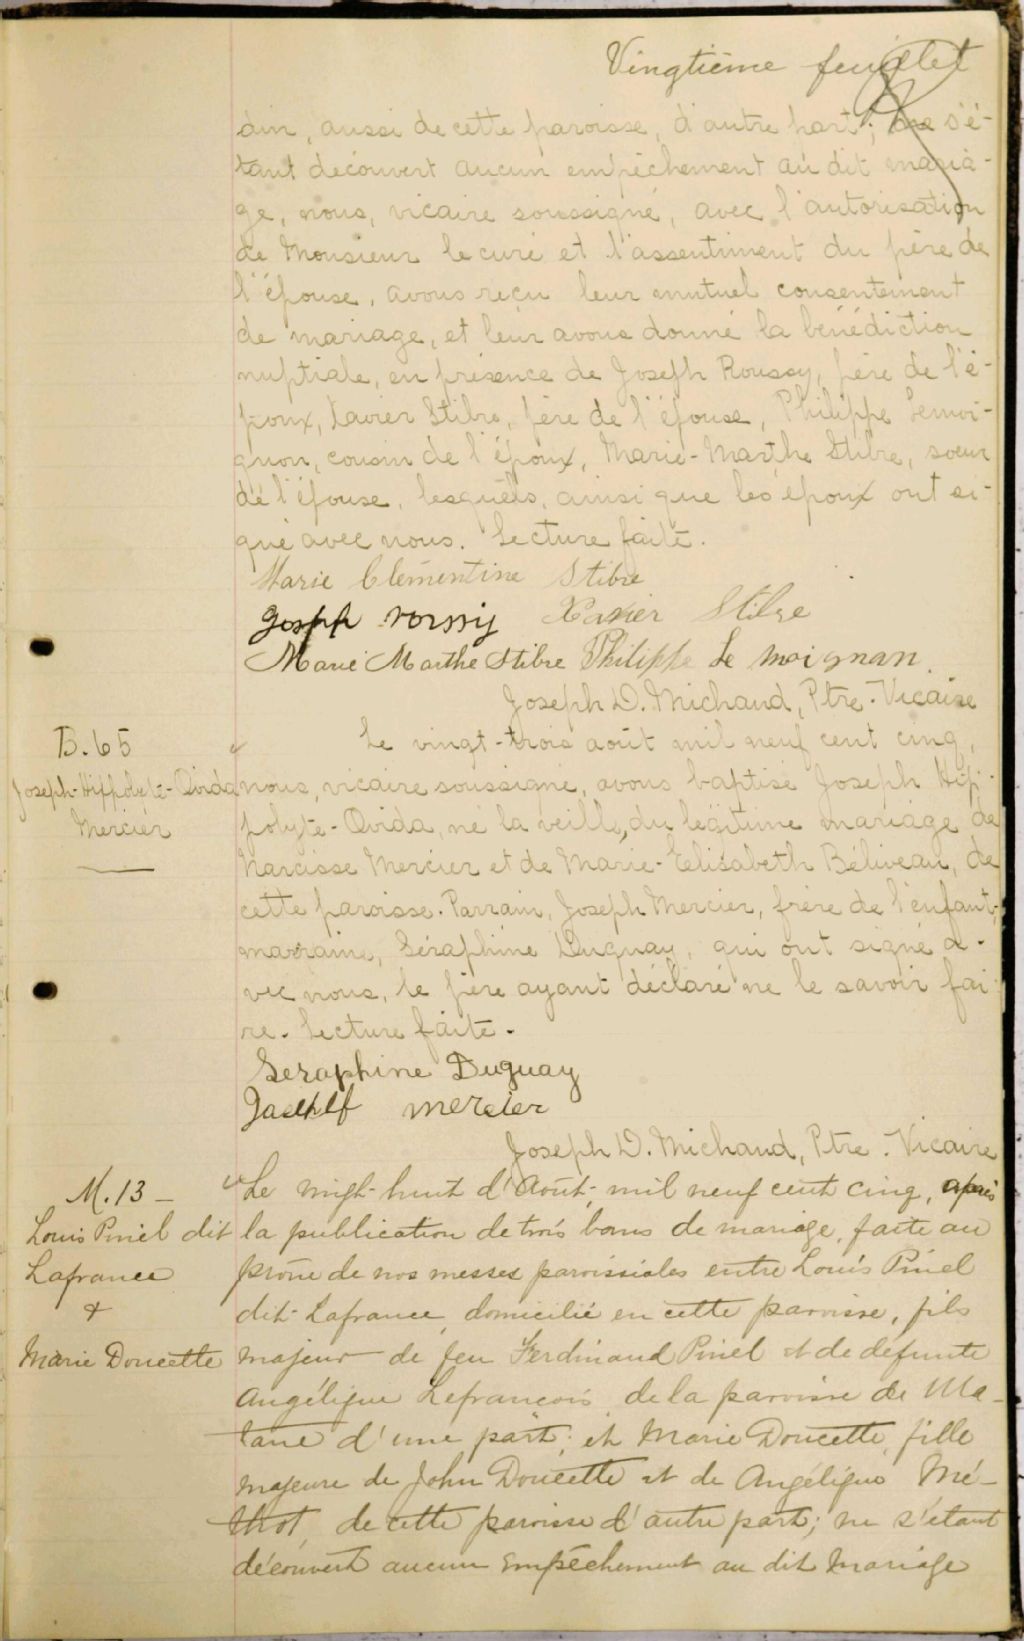 Vingtième feuillet
din, aussi de cette paroisse, d'autre part; ne s'é-
tant découvert aucun empêchement au dit maria-
ge, nous, vicaire soussigné, avec l'autorisation
de Monsieur le curé et l'assentiment du père de
l'épouse, avons reçu leur mutuel consentement
de mariage, et leur avons donné la bénédiction
nuptiale, en présence de Joseph Roussy, père de l'é-
poux, Xavier Stibre, père de l'épouse, Philippe Lemoi-
gnon, cousin de l'époux, Marie-Marthe Stibre, soeur
de l'épouse, lesquels, ainsi que les époux ont si-
gné avec nous. Lecture faite.
Marie Clémentine Stibre
Joseph roussy Xavier Stibre
Marie Marthe Stibre Philippe Le Moignan
Joseph D. Michaud, Ptre-Vicaire
B. 65
Joseph-Hippolyte-Ovida
Mercier
Le vingt-trois août mil neuf cent cinq,
nous, vicaire soussigné, avons baptisé Joseph Hip-
polyte-Ovida, né la veille, du légitime mariage de
Narcisse Mercier et de Marie-Elisabeth Béliveau, de
cette paroisse. Parrain, Joseph Mercier, frère de l'enfant;
marraine, Séraphine Duguay, qui ont signé a-
vec nous, le père ayant déclaré ne le savoir fai-
re. Lecture faite.
Seraphine Duguay
mercier
Joseph D. Michaud, Ptre. Vicaire
M. 13 -
Louis Pinel dit
Lafrance
&
Marie Doucette
Le vingt-huit d'Août, mil neuf cent cinq, après
la publication de trois bans de mariage, faite au
prône de nos messes paroissiales entre Louis Pinel
dit-Lafrance, domicilié en cette paroisse, fils
majeur de feu Ferdinand Pinel et de défunte
Angélique Lefrançois de la paroisse de Ma-
tane d'une part; et Marie Doucette, fille
majeure de John Doucette et de Angélique Mé-
thot, de cette paroisse d'autre part; ne s'étant
découvert aucun empêchement au dit Mariage